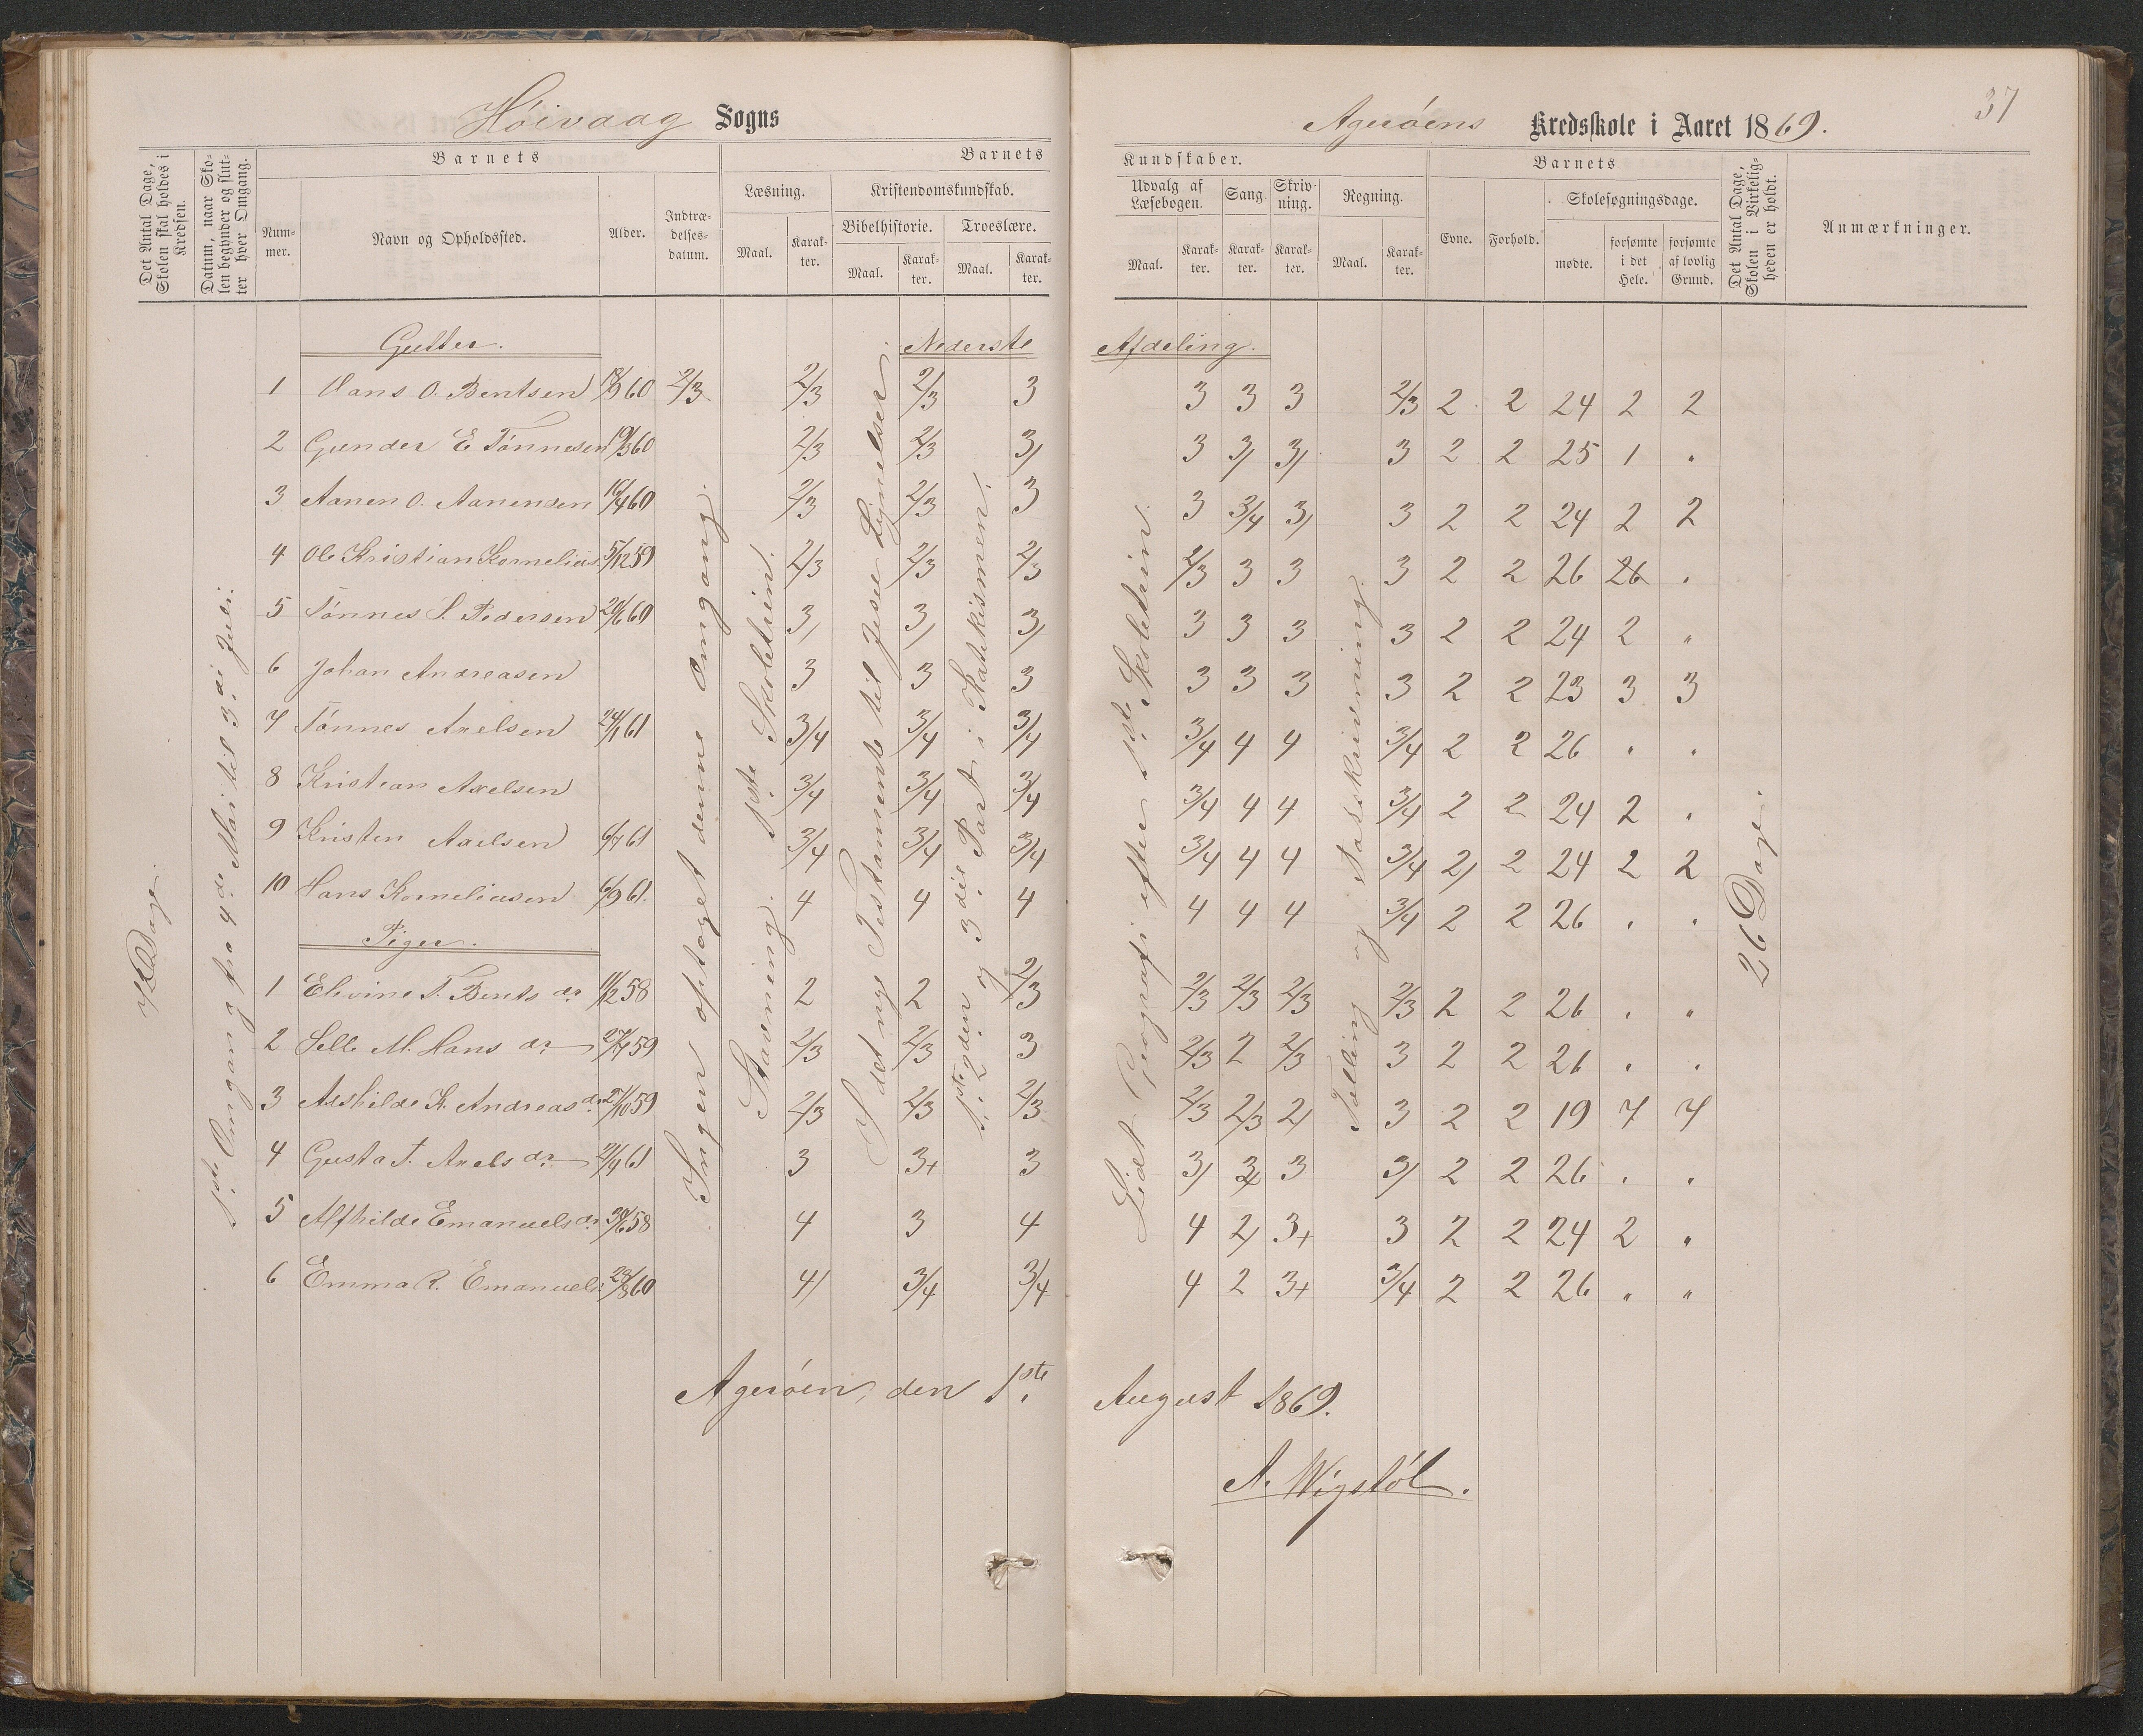 Höivaag Sogns
Agerøens Kredsskole i Aaret 1869.
37
Det Antal Dage, Skolen skal holdes i Kredsen.
Datum, naar Skolen begynder og slutter hver Omgang.
Barnets
Nummer.
Navn og Opholdssted.
Alder.
Indtrædelsesdatum.
Barnets
Læsning.
Maal.
Karakter.
Kristendomskundskab.
Bibelhistorie.
Maal.
Karakter.
Troeslære.
Maal.
Karakter.
Kundskaber.
Udvalg af Læsebogen.
Maal.
Karakter.
Sang.
Karakter.
Skrivning.
Karakter.
Regning.
Maal.
Karakter.
Barnets
Evne.
Forhold.
Skolesøgningsdage.
mødte.
forsømte i det Hele.
forsømte af lovlig Grund.
Det Antal Dage, Skolen i Virkeligheden er holdt.
Anmærkninger.
Gutter.
Nederste Afdeling.
1 Hans O. Bentsen 18/9 60 2/3 2/3 2/3 3 3 3 3 2/3 2 2 24 2 2
2 Gunder E Tønnesen 19/3 60 2/3 2/3 3/ 3 3/ 3/ 3 2 2 25 1 "
3 Aanen O. Aanensen 16/4 60 2/3 2/3 3 3 3/4 3/ 3 2 2 24 2 2
4 Ole Kristian Kornelius. 5/12 59 2/3 2/3 2/3 2/3 3 3 3 2 2 26 26 "
5 Tønnes S. Pedersen 20/6 60 3/ 3/ 3/ 3 3 3 3 2 2 24 2 "
6 Johan Andreasen 3 3 3 3 3 3 3 2 2 23 3 3
7 Tønnes Axelsen 24/1 61 3/4 3/4 3/4 3/4 4 4 3/4 2 2 26 " "
8 Kristian Axelsen 3/4 3/4 3/4 3/4 4 4 3/4 2 2 24 2 "
9 Kristen Axelsen 6/7 61 3/4 3/4 3/4 3/4 4 4 3/4 2/ 2 24 2 2
10 Hans Korneliusen 6/9 61. 4 4 4 4 4 4 3/4 2 2 26 " "
Piger.
1 Elevine T. Bents dr 11/12 58 2 2 2/3 2/3 2/3 2/3 2/3 2 2 26 " "
2 M. Hans dr 27/7 59 2/3 2/3 3 2/3 2 2/3 3 2 2 26 " "
3 K. Andreas dr 21/10 59 2/3 2/3 2/3 2/3 2/3 2/ 3 2 2 19 7 7
4 Gusta T. Axels dr 21/4 61 3 3+ 3 3/ 3 3/ 2 2 26 " "
5 Alfhilde Emanuels dr 30/6 58 4 3 4 4 2/ 3+ 3 2 2 24 2 "
6 Emma R. Emanuels. 28/8 60 4/ 3/4 3/4 4 2 3+ 3/4 2 2 26 " "
Dage
1ste Omgang fra 4de Mai til 3die Juli.
Ingen optaget denne Omgang.
Stavning. 1ste Skoletrin.
I det nye Testamente til Jesu Lignelser.
1ste, 2den og 3die Part i Katekismen.
Lidt Geografi efter 1ste Skoletrin.
Tælling og Talskrivning.
26 Dage.
Agerøen, den 1ste August 1869.
A. Wigstøl.